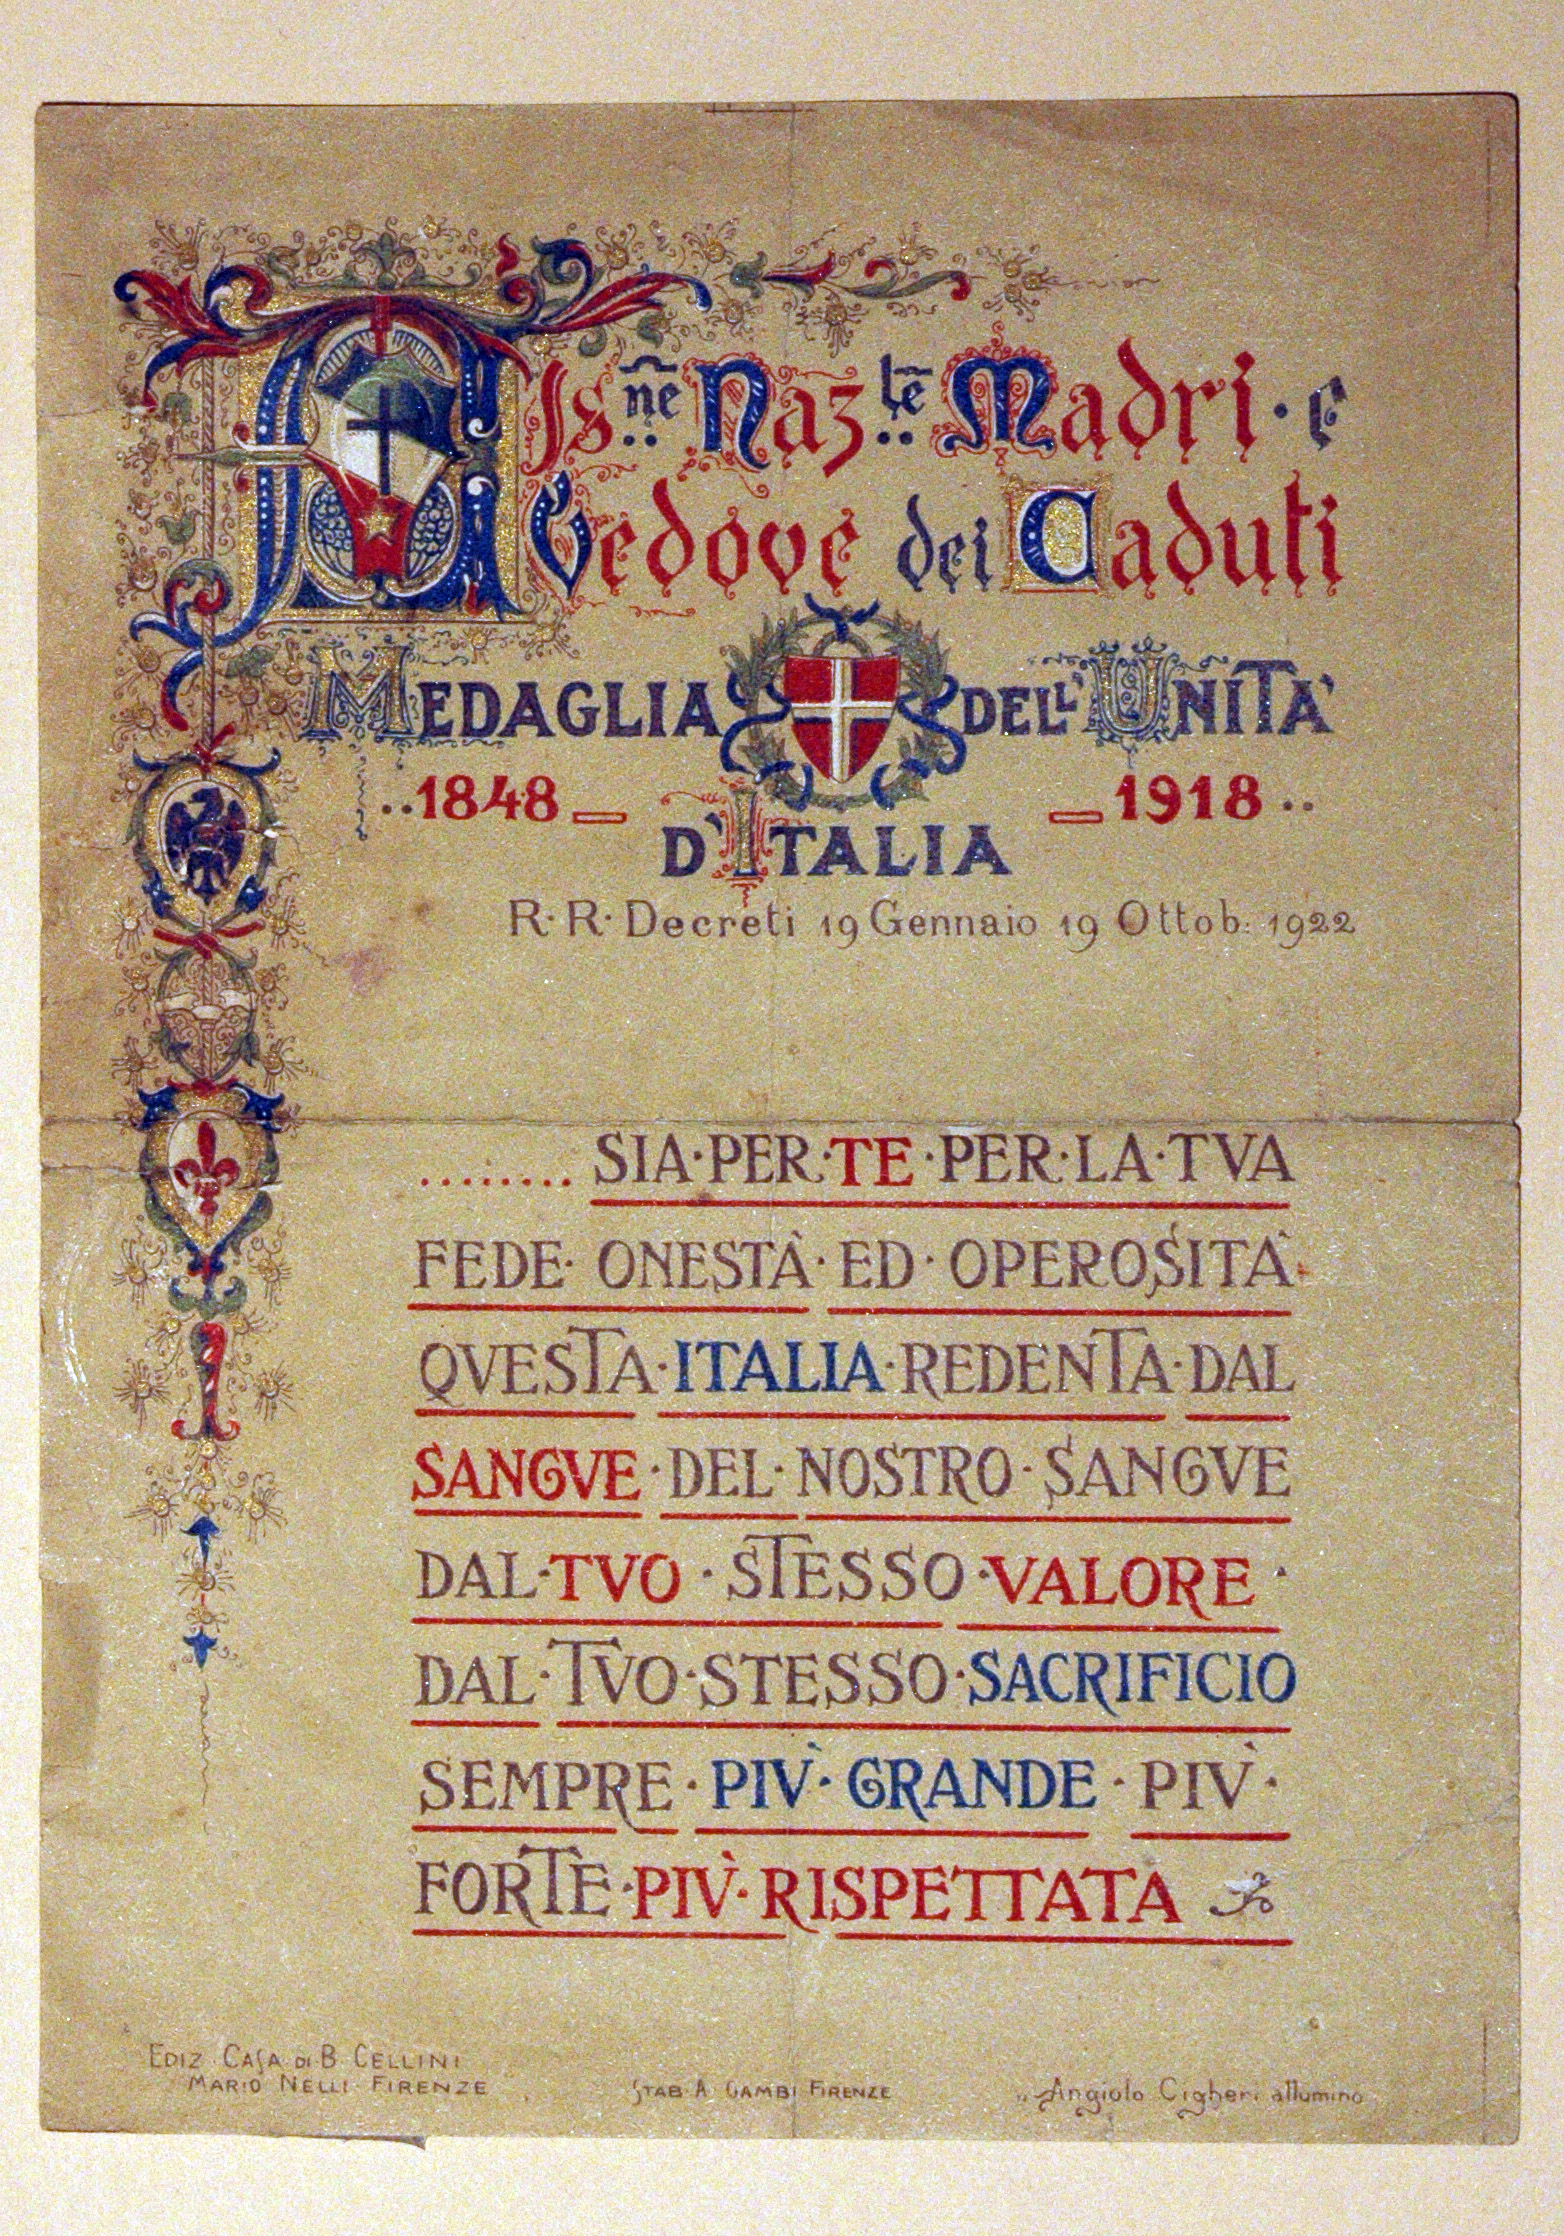 Ass.ne Naz.le Madri · e
Vedove dei Caduti
MEDAGLIA DELL'UNITA'
..1848_ _1918..
D'ITALIA
R·R·Decreti 19 Gennaio 19 Ottob: 1922
........SIA·PER·TE·PER·LA·TVA
FEDE· ONESTÀ·ED·OPEROSITÀ
QVESTA·ITALIA·REDENTA·DAL
SANGVE·DEL·NOSTRO·SANGVE
DAL·TVO·STESSO·VALORE·
DAL·TVO·STESSO·SACRIFICIO
SEMPRE·PIV̀·GRANDE·PIV̀·
FORTE·PIV̀·RISPETTATA
EDIZ. CASA DI B. CELLINI
MARIO NELLI·FIRENZE
STAB. A. GAMBI FIRENZE
Angiolo Cigheri allumino